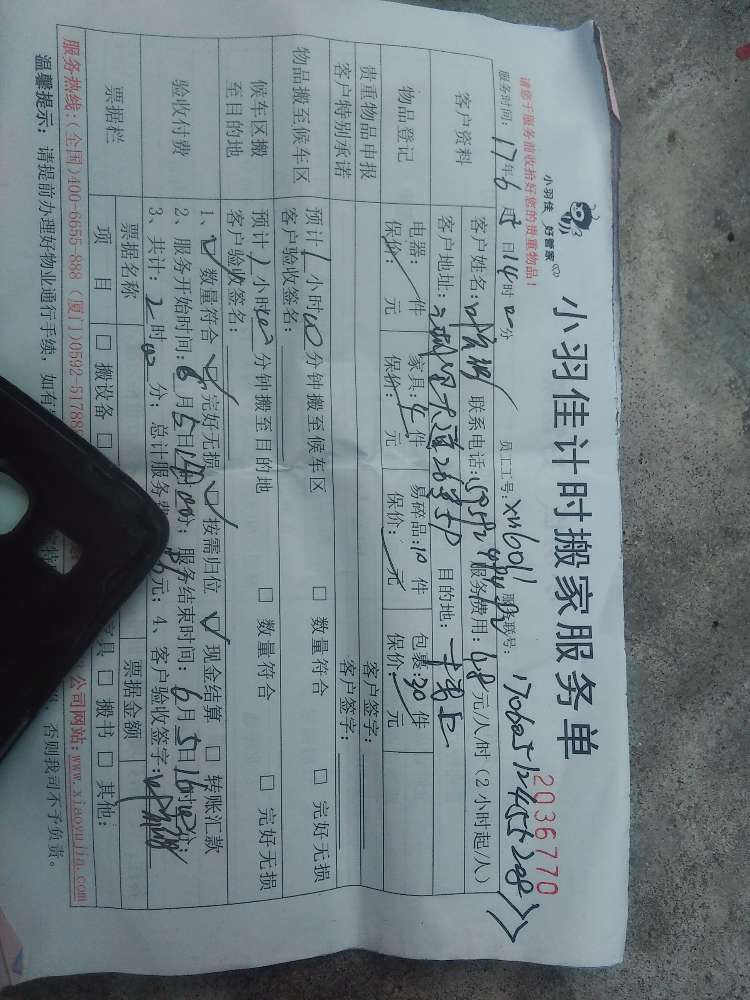 小羽佳计时搬家服务单
2036770
小羽佳 好管家
请您于服务前收拾好您的贵重物品！
服务时间：17年6月5日14时00分 员工工号：xm6011 服务联号：
客户资料 客户姓名： 联系电话： 服务费用：48元/人/时（2小时起/人）
客户地址： 目的地：
物品登记 电器：件 家具：4件 易碎品：10件 包裹：30件
保价：元 保价：元 保价：元 保价：元
贵重物品申报 客户签字：
客户特别承诺 客户签字：
物品搬至候车区 预计1小时00分钟搬至候车区 □ 数量符合 □ 完好无损
客户验收签名：
候车区搬至目的地 预计1小时00分钟搬至目的地 □ 数量符合 □ 完好无损
客户验收签名：
验收付费 1、☑ 数量符合 ☑ 完好无损 ☑ 按需归位 ☑ 现金结算 □ 转账汇款
2、服务开始时间：6月5日14时00分；服务结束时间：6月5日16时00分；
3、共计：2时00分；总计服务费 元；4、客户验收签字：
票据栏 票据名称 票据金额
项目 □ 搬设备 □ 家具 □ 搬书 □ 其他：
服务热线：（全国）400-6655-888（厦门）0592-51788 公司网站：www.xiaoyujia.com
温馨提示：请提前办理好物业通行手续，如有 特 ，否则我司不予负责。